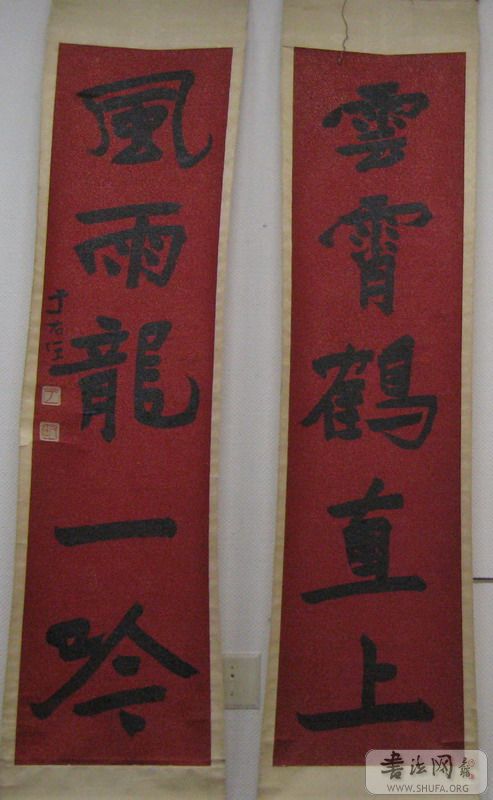 雲霄鶴直上
風雨龍一吟
于右任
书法网
WWW.SHUFA.ORG